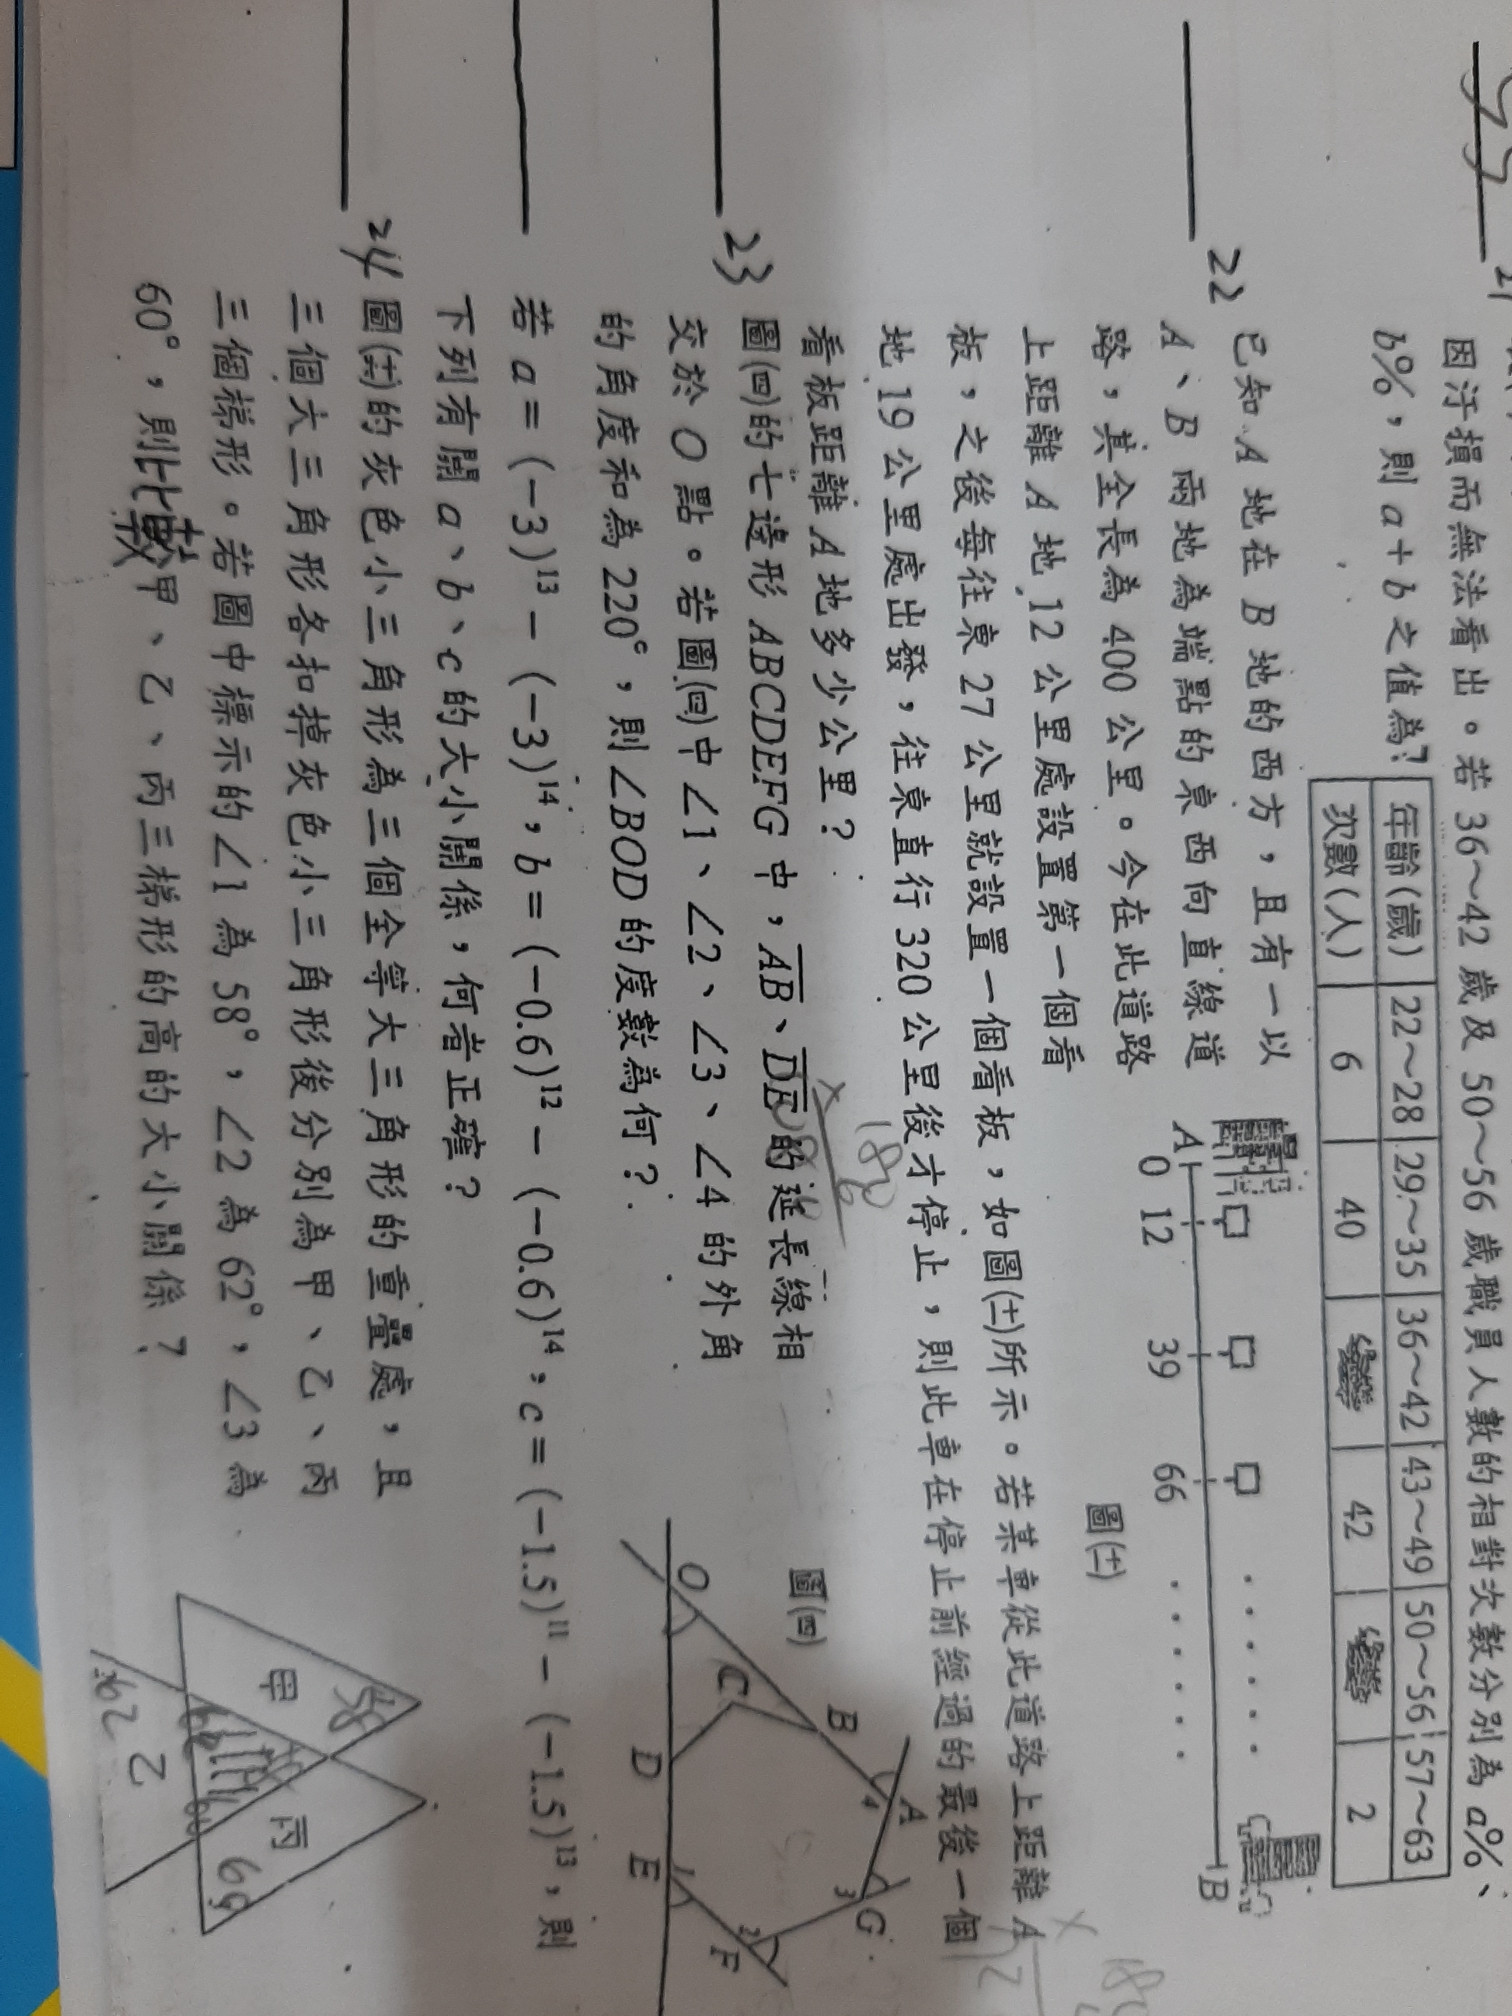 21
因汙損而無法看出。若 36～42 歲及 50～56 歲職員人數的相對次數分別為 a%、
b%，則 a＋b 之值為?
年齡(歲) 22～28 29～35 36～42 43～49 50～56 57～63
次數(人) 6 40 42 2
22 已知 A 地在 B 地的西方，且有一以
A、B 兩地為端點的東西向直線道
路，其全長為 400 公里。今在此道路
上距離 A 地 12 公里處設置第一個看
板，之後每往東 27 公里就設置一個看板，如圖(十一)所示。若某車從此道路上距離 A
地 19 公里處出發，往東直行 320 公里後才停止，則此車在停止前經過的最後一個
看板距離 A 地多少公里？
A B
0 12 39 66 ......
圖(十一)
180
23 圖(四)的七邊形 ABCDEFG 中，AB、DE 的延長線相
交於 O 點。若圖(四)中∠1、∠2、∠3、∠4 的外角
的角度和為 220°，則∠BOD 的度數為何？
圖(四)
O C B A D E F G
1 2 3 4
若 a＝(－3)¹³－(－3)¹⁴，b＝(－0.6)¹²－(－0.6)¹⁴，c＝(－1.5)¹¹－(－1.5)¹³，則
下列有關 a、b、c 的大小關係，何者正確？
24 圖(六)的灰色小三角形為三個全等大三角形的重疊處，且
三個大三角形各扣掉灰色小三角形後分別為甲、乙、丙
三個梯形。若圖中標示的∠1 為 58°，∠2 為 62°，∠3 為
60°，則比較甲、乙、丙三梯形的高的大小關係？
甲 58
丙
乙
62